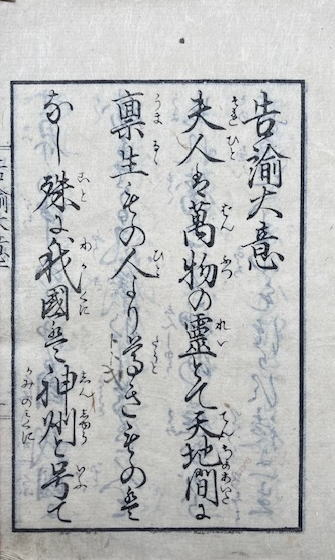 告諭大意
夫人は萬物の靈とて天地間に
稟生もの人より尊きものは
なし殊に我國は神州と号て
告諭大意